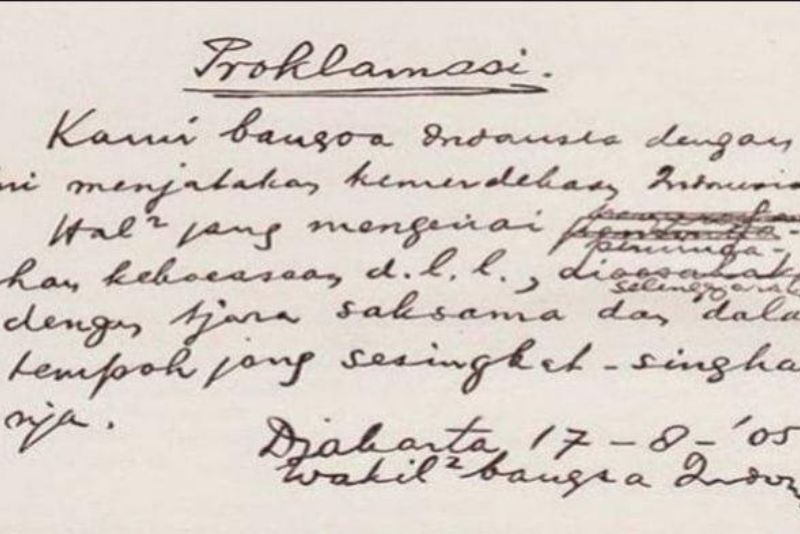 Proklamasi.
Kami bangsa Indonesia dengan
ni menjatakan kemerdekaan Indonesia
Hal² jang mengenai
peminda-
han kekoeasaan d.l.l.,
selenggarak
dengan tjara saksama dan dala
tempoh jang sesingkat-singka
nja.
Djakarta 17 - 8 - '05
Wakil² bangsa Indon